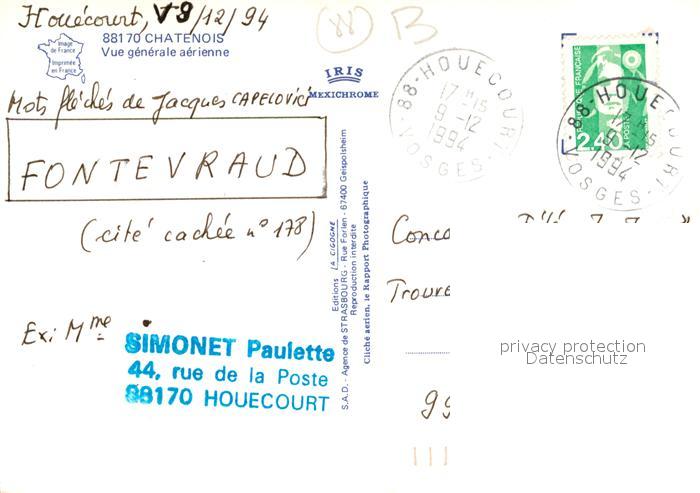 Houécourt, V9/12/94
88170 CHATENOIS
Vue générale aérienne
Image
de France
Imprimée
en France
IRIS
MEXICHROME
(88) B
88-HOUECOURT-VOSGES
17 H 15
9-12
1994
RÉPUBLIQUE FRANÇAISE
2,40
LA POSTE
88-HOUECOURT-VOSGES
17 H 15
9-12
1994
Mots fléchés de Jacques CAPELOVICI
FONTEVRAUD
(cité cachée n° 178)
Exi Mme
SIMONET Paulette
44, rue de la Poste
88170 HOUECOURT
Editions LA CIGOGNE
S.A.D. - Agence de STRASBOURG - Rue Forlen - 67400 Geispolsheim
Reproduction interdite
Cliché aérien, le Rapport Photographique
Conco
Télé 7
Trouve
99
privacy protection
Datenschutz